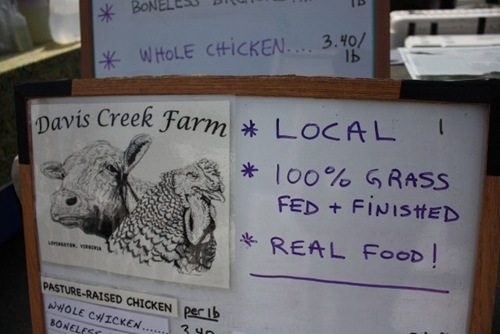 * BONELESS
lb
* WHOLE CHICKEN.... 3.40/
lb
Davis Creek Farm
LOVINGSTON, VIRGINIA
* LOCAL
* 100% GRASS
FED + FINISHED
* REAL FOOD!
PASTURE-RAISED CHICKEN per lb
WHOLE CHICKEN...... 3.40
BONELESS